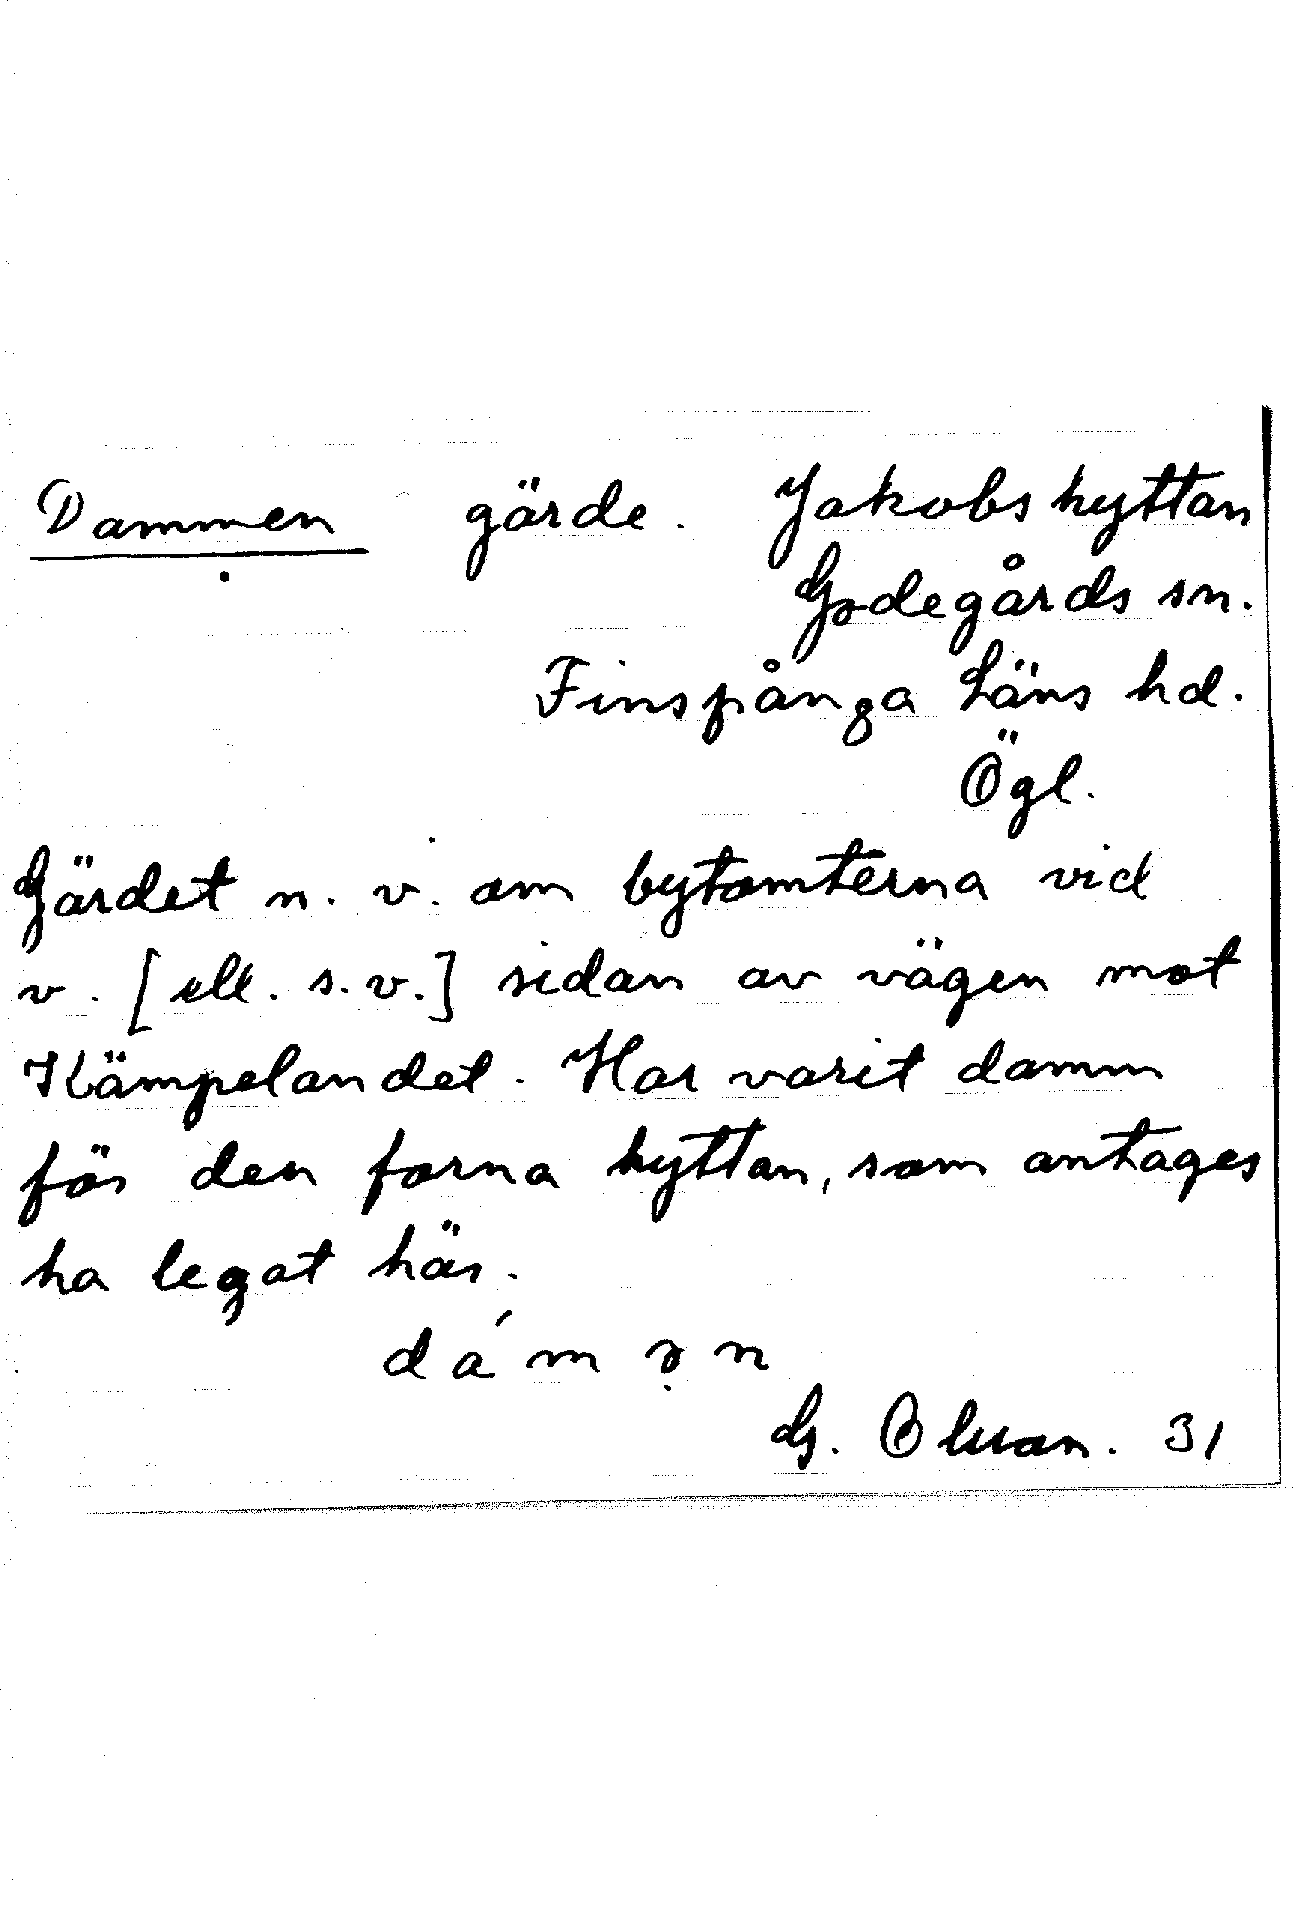 Dammen gärde. Jakobshyttan
Godegårds sn.
Finspånga Läns hd.
Ögl.
Gärdet n. v. om bytomterna vid
v. [ell. s.v.] sidan av vägen mot
Kämpelandet. Har varit damm
för den forna hyttan, som antages
ha legat här.
dám ə̣ n
G. 31